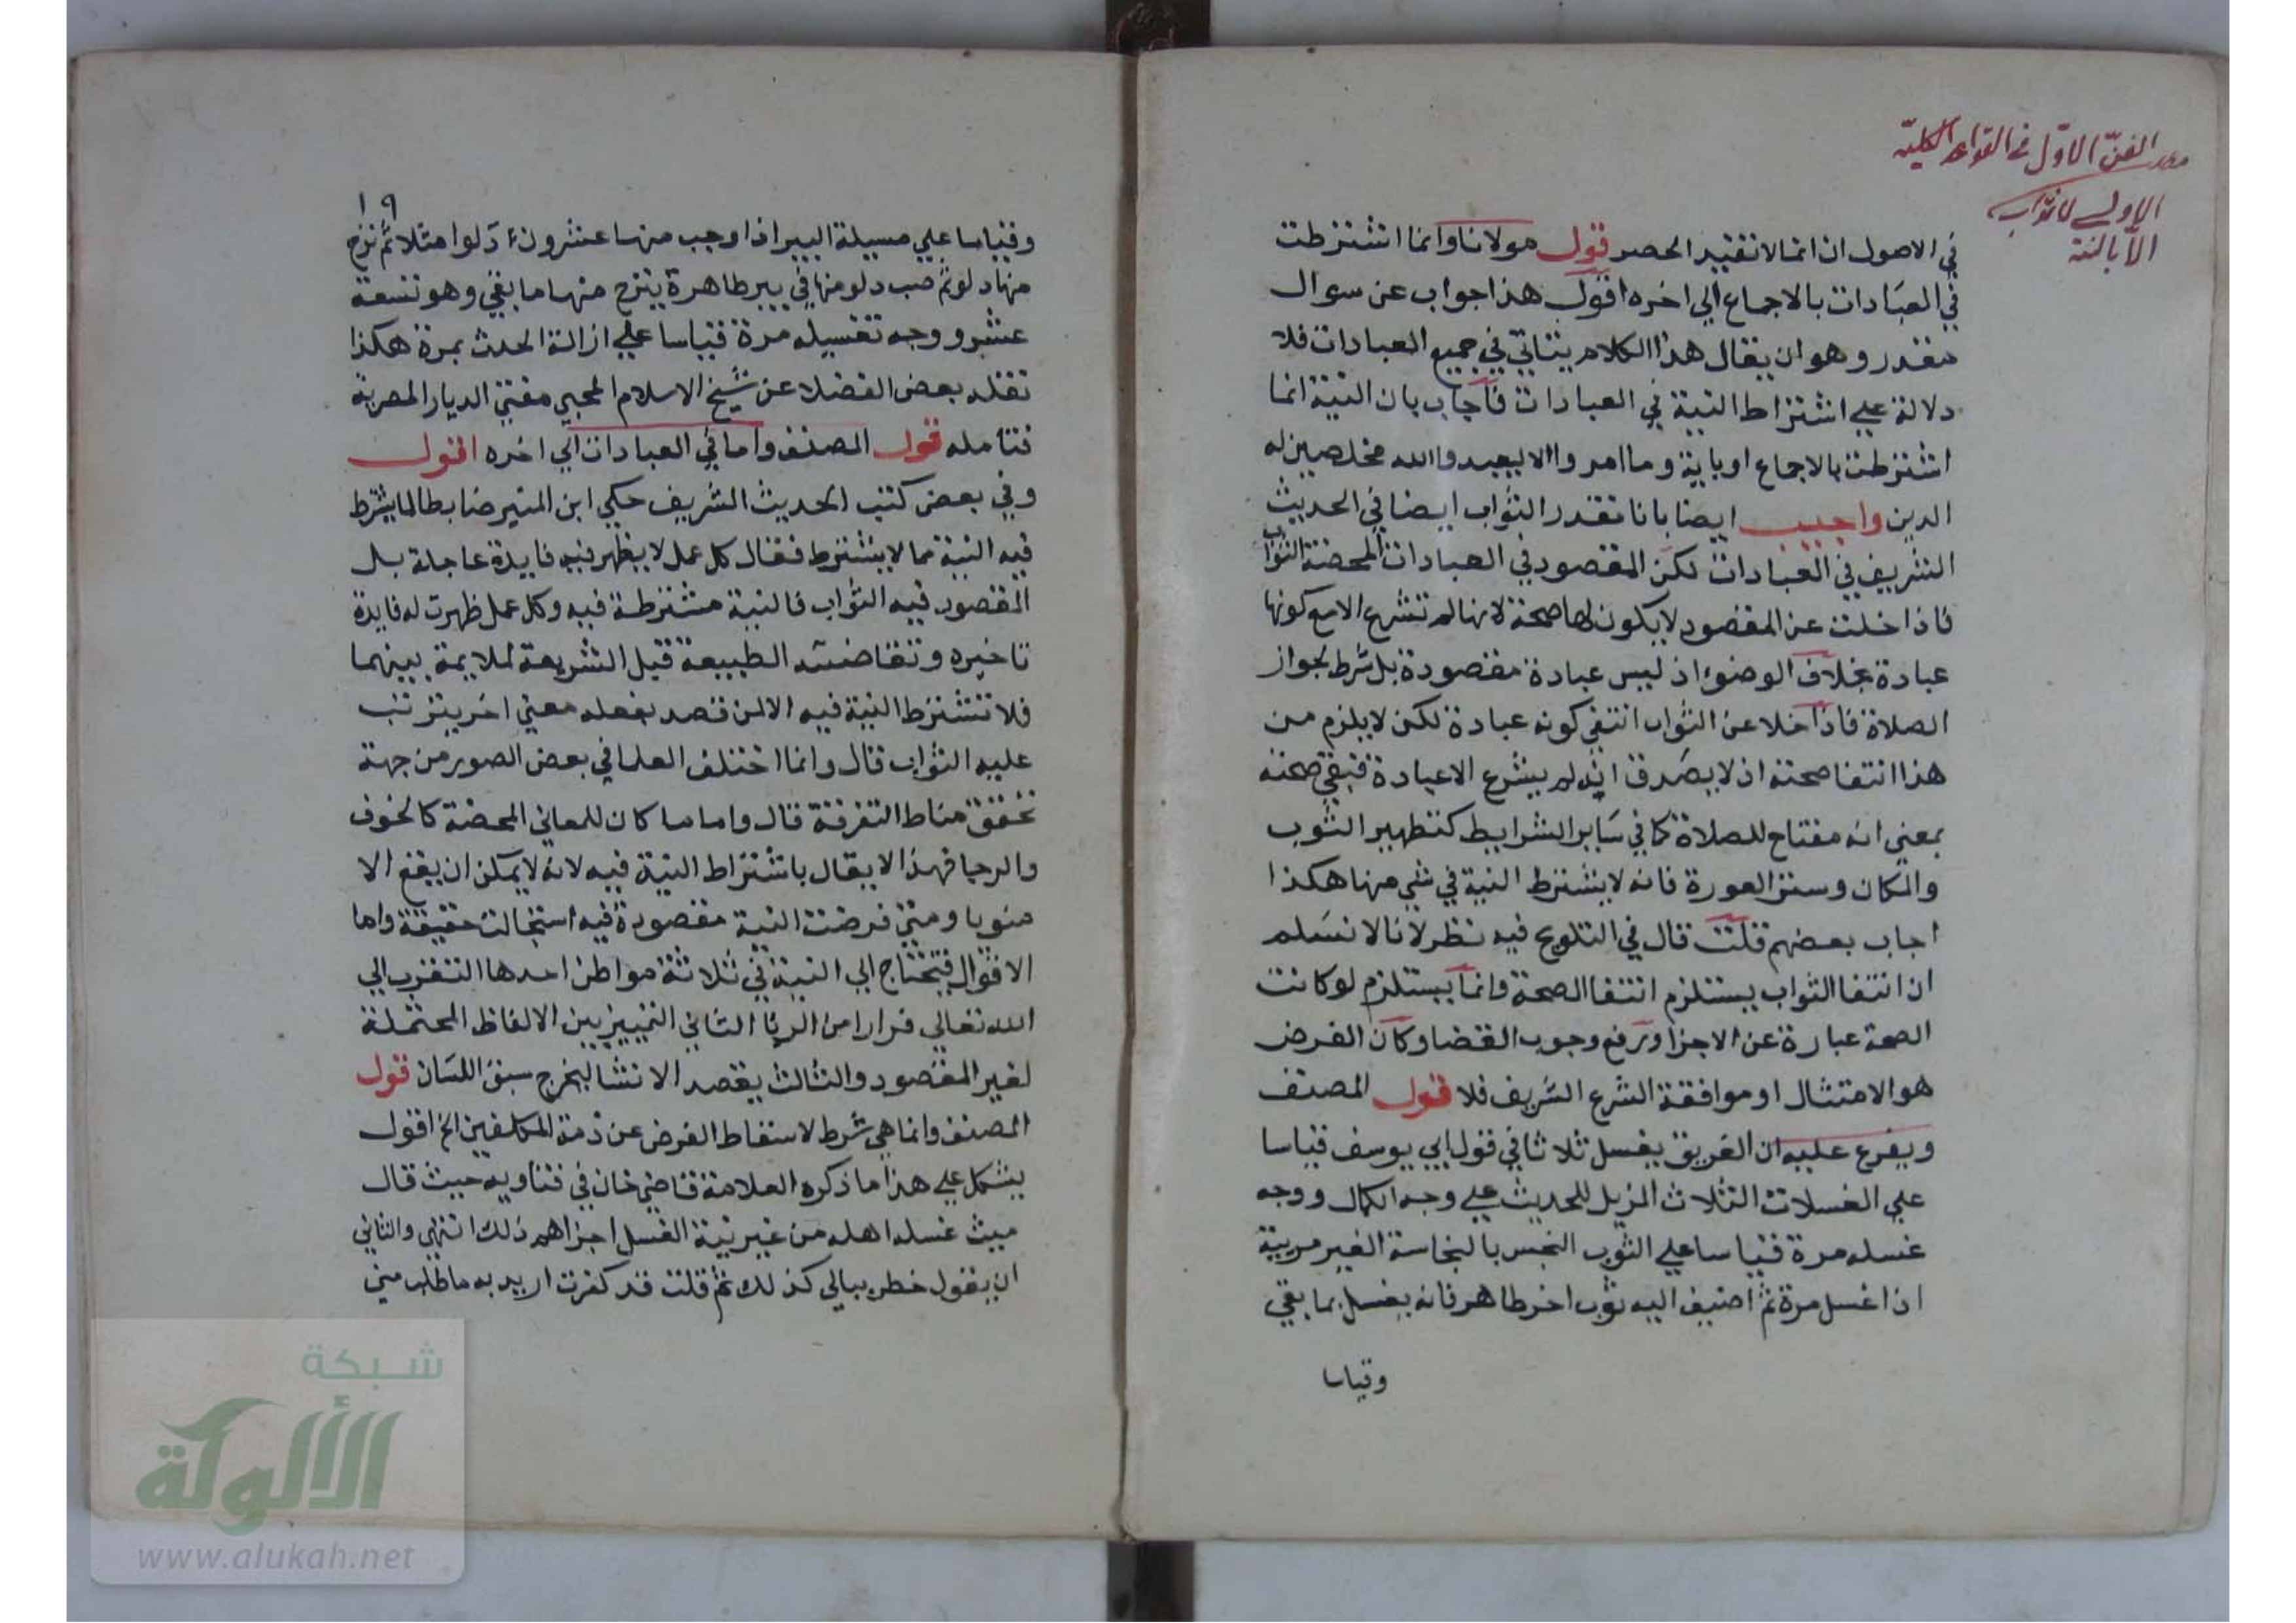 الفن الاول في القواعد الكلية
الاولى لا ثواب
الا بالنية
في الاصول ان انما لا تفيد الحصر قول مولانا وانما اشترطت
في العبادات بالاجماع الي اخره اقول هذا جواب عن سوال
مقدر وهو ان يقال هذا الكلام يتاتي في جميع العبادات فلا
دلالة علي اشتراط النية في العبادات فاجاب بان النية انما
اشترطت بالاجماع او باية وما امروا الا ليعبدوا الله مخلصين له
الدين واجيب ايضا بانا نقدر الثواب ايضا في الحديث
الشريف في العبادات لكن المقصود في العبادات المحضة الثواب
فاذا خلت عن المقصود لا يكون لها صحة لانها لم تشرع الا مع كونها
عبادة بخلاف الوضوء اذ ليس عبادة مقصودة بل شرط لجواز
الصلاة فاذا خلا عن الثواب انتفي كونه عبادة لكن لا يلزم من
هذا انتفا صحته اذ لا يصدق انه لم يشرع الا عبادة فبقي صحته
بمعني انه مفتاح للصلاة كما في ساير الشرايط كتطهير الثوب
والمكان وستر العورة فانه لا يشترط النية في شي منها هكذا
اجاب بعضهم قلت قال في التلويح فيه نظر لانا لا نسلم
ان انتفا الثواب يستلزم انتفا الصحة وانما يستلزم لو كانت
الصحة عبارة عن الاجزا ورفع وجوب القضا وكان الغرض
هو الامتثال او موافقة الشرع الشريف فلا قول المصنف
ويفرع عليه ان الغريق يغسل ثلاثا في قول ابي يوسف قياسا
علي الغسلات الثلاث المزيل للحديث علي وجه الكمال ووجه
غسله مرة قياسا علي الثوب النجس بالنجاسة الغير مريية
اذا غسل مرة ثم اضيف اليه ثوب اخر طاهر فانه يغسل بما بقي
وقياسا
١٩
وقياسا علي مسيلة البير اذا وجب منها عشرون دلوا مثلا ثم نزح
منها دلو ثم صب دلو منها في بير طاهرة ينزح منها ما بقي وهو تسعة
عشر ووجه تغسيله مرة قياسا علي ازالة الحدث بمرة هكذا
نقله بعض الفضلا عن شيخ الاسلام المحبي مفتي الديار المصرية
فتامله قول المصنف واما في العبادات الي اخره اقول
وفي بعض كتب الحديث الشريف حكي ابن المنير ضابطا لما يشترط
فيه النية مما لا يشترط فقال كل عمل لا يظهر فيه فايدة عاجلة بل
المقصود فيه الثواب فالنية مشترطة فيه وكل عمل ظهرت له فايدة
تاخيره وتقاضته الطبيعة قبل الشريعة لملايمة بينهما
فلا تشترط النية فيه الا لمن قصد بفعله معني اخر يترتب
عليه الثواب قال وانما اختلف العلما في بعض الصور من جهة
تحقق مناط التفرقة قال واما ما كان للمعاني المحضة كالخوف
والرجا فهذا لا يقال باشتراط النية فيه لانه لا يمكن ان يقع الا
منويا ومتي فرضت النية مقصودة فيه استحالت حقيقة واما
الاقوال فتحتاج الي النية في ثلاثة مواطن احدها التقرب الي
الله تعالي فرارا من الريا الثاني التمييز بين الالفاظ المحتملة
لغير المقصود والثالث يقصد الانشا ليخرج سبق اللسان قول
المصنف وانما هي شرط لاسقاط الفرض عن ذمة المكلفين الخ اقول
يشكل علي هذا ما ذكره العلامة قاضي خان في فتاويه حيث قال
ميت غسله اهله من غير نية الغسل اجزاهم ذلك انتهي والثاني
ان يقول خطر ببالي كذلك ثم قلت قد كفرت اريد به ما طلب مني
شبكة
الألوكة
www.alukah.net